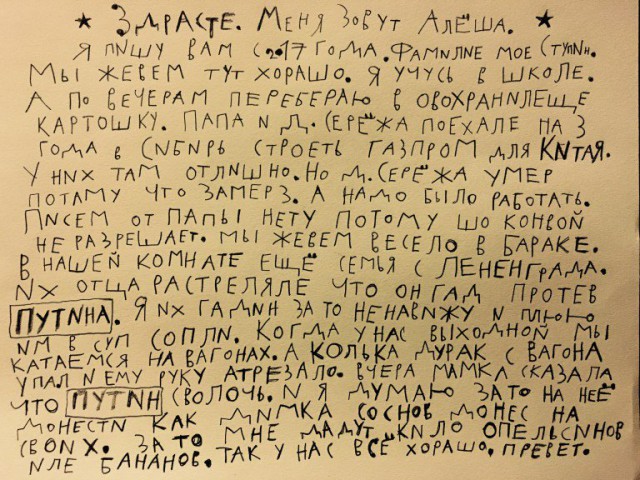 ★ Здрасте. Меня зовут Алёша. ★
Я пишу вам с 2017 года. Фамилие мое Ступин.
Мы жевем тут хорашо. Я учусь в школе.
А по вечерам перебераю в овохранилеще
картошку. Папа и д. Серёжа поехале на 3
года в Сибирь строеть газпром для Китая.
У них там отлишно. Но д. Серёжа умер
потаму что замерз. А надо было работать.
Писем от папы нету потому шо конвой
не разрешает. Мы жевем весело в бараке.
В нашей комнате ещё семья с Лененграда.
Их отца растреляле что он гад протев
ПУТИНА. Я их гадин за то ненавижу и плюю
им в суп сопли. Когда у нас выходной мы
катаемся на вагонах. А Колька дурак с вагона
упал и ему руку атрезало. Вчера мамка сказала
что ПУТИН сволочь. И я думаю за то на неё
донести как Димка Соснов донес на
своих. За то мне дадут кило опельсинов
иле бананов. Так у нас всё хорашо. Превет.